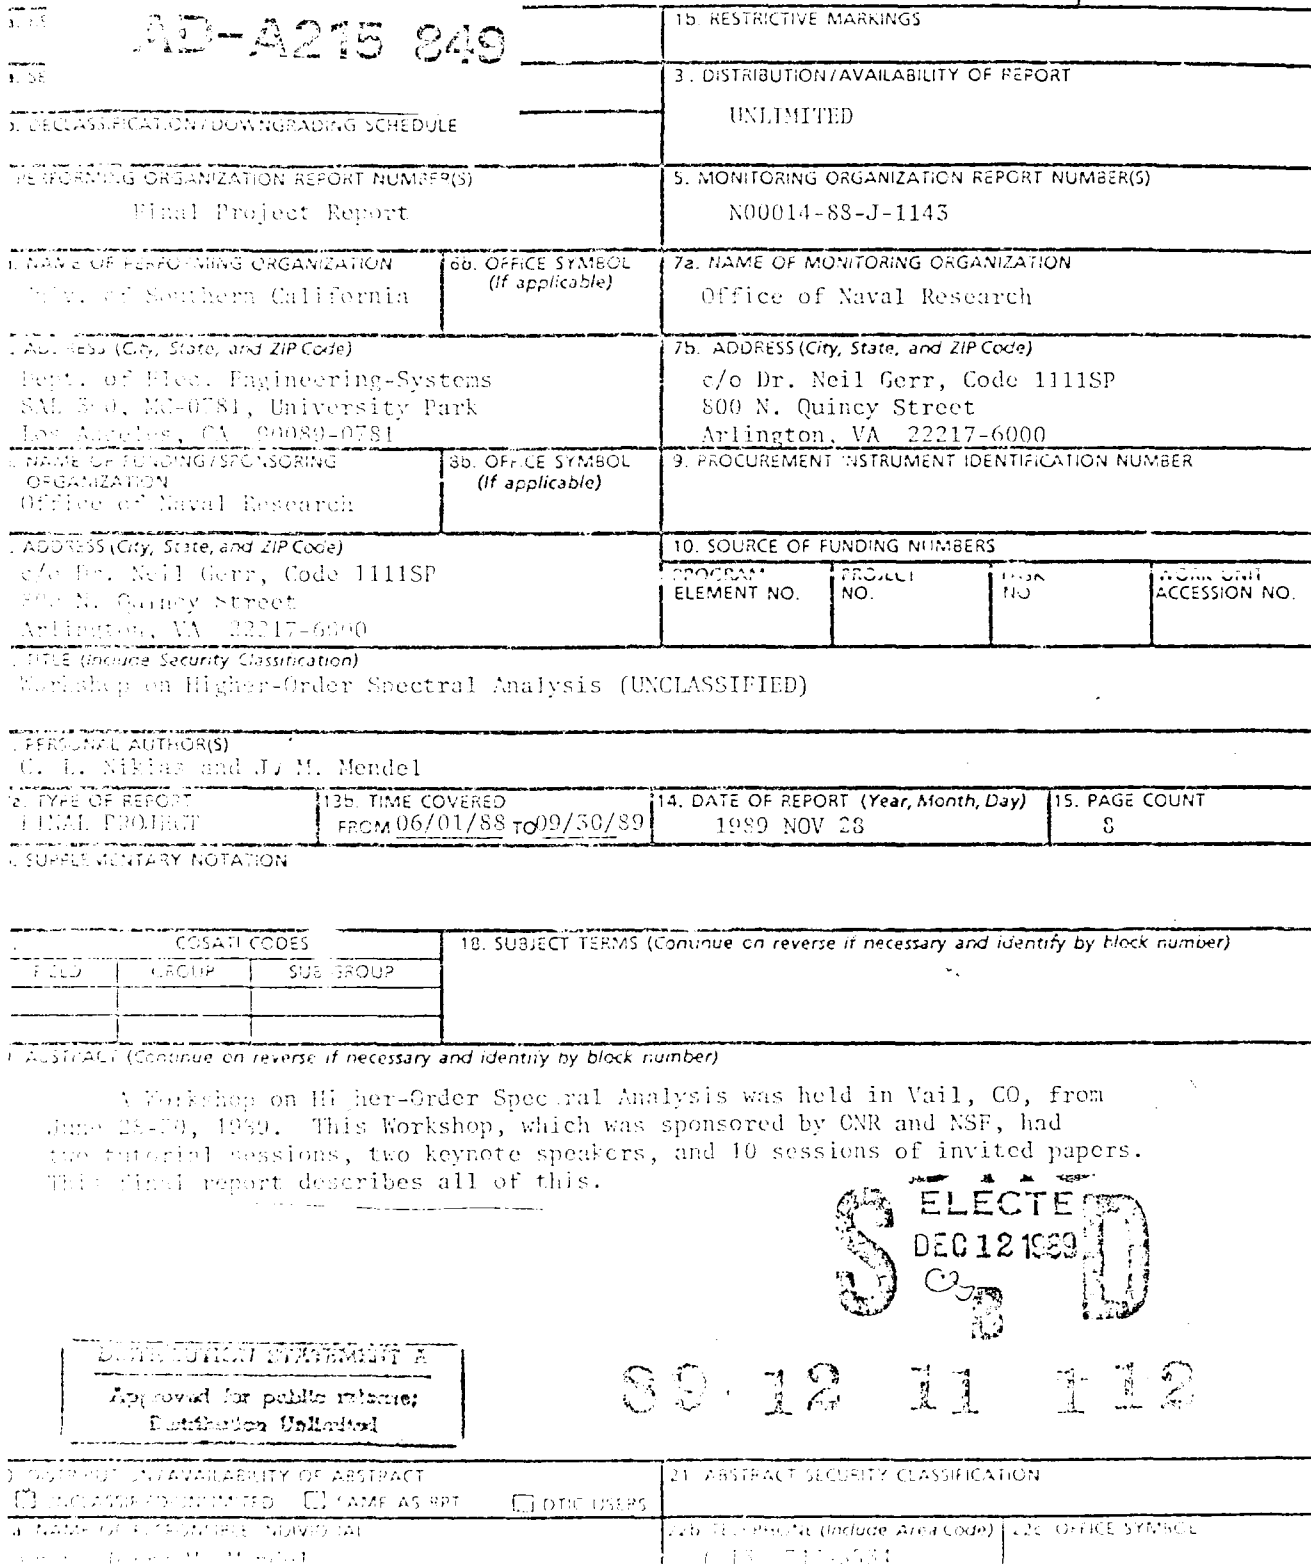 AD-A215 849
1b. RESTRICTIVE MARKINGS
3. DISTRIBUTION/AVAILABILITY OF REPORT
UNLIMITED
DECLASSIFICATION/DOWNGRADING SCHEDULE
PERFORMING ORGANIZATION REPORT NUMBER(S)
Final Project Report
5. MONITORING ORGANIZATION REPORT NUMBER(S)
N00014-88-J-1143
NAME OF PERFORMING ORGANIZATION
Univ. of Southern California
6b. OFFICE SYMBOL
(If applicable)
7a. NAME OF MONITORING ORGANIZATION
Office of Naval Research
ADDRESS (City, State, and ZIP Code)
Dept. of Elec. Engineering-Systems
SAL 300, MC-0781, University Park
Los Angeles, CA 90089-0781
7b. ADDRESS (City, State, and ZIP Code)
c/o Dr. Neil Gerr, Code 1111SP
800 N. Quincy Street
Arlington, VA 22217-6000
NAME OF FUNDING/SPONSORING
ORGANIZATION
Office of Naval Research
8b. OFFICE SYMBOL
(If applicable)
9. PROCUREMENT INSTRUMENT IDENTIFICATION NUMBER
ADDRESS (City, State, and ZIP Code)
c/o Dr. Neil Gerr, Code 1111SP
800 N. Quincy Street
Arlington, VA 22217-6000
10. SOURCE OF FUNDING NUMBERS
PROGRAM
ELEMENT NO.
PROJECT
NO.
TASK
NO
WORK UNIT
ACCESSION NO.
TITLE (Include Security Classification)
Workshop on Higher-Order Spectral Analysis (UNCLASSIFIED)
PERSONAL AUTHOR(S)
C. L. Nikias and J. M. Mendel
TYPE OF REPORT
FINAL PROJECT
13b. TIME COVERED
FROM 06/01/88 TO 09/30/89
14. DATE OF REPORT (Year, Month, Day)
1989 NOV 28
15. PAGE COUNT
8
SUPPLEMENTARY NOTATION
COSATI CODES
FIELD GROUP SUB-GROUP
18. SUBJECT TERMS (Continue on reverse if necessary and identify by block number)
ABSTRACT (Continue on reverse if necessary and identify by block number)
A Workshop on Higher-Order Spectral Analysis was held in Vail, CO, from
June 28-30, 1989. This Workshop, which was sponsored by ONR and NSF, had
two tutorial sessions, two keynote speakers, and 10 sessions of invited papers.
This final report describes all of this.
S ELECTE D
DEC 12 1989
B
DISTRIBUTION STATEMENT A
Approved for public release;
Distribution Unlimited
89 12 11 112
DISTRIBUTION/AVAILABILITY OF ABSTRACT
UNCLASSIFIED/UNLIMITED SAME AS RPT DTIC USERS
21. ABSTRACT SECURITY CLASSIFICATION
NAME OF RESPONSIBLE INDIVIDUAL
22b. TELEPHONE (Include Area Code)
22c. OFFICE SYMBOL